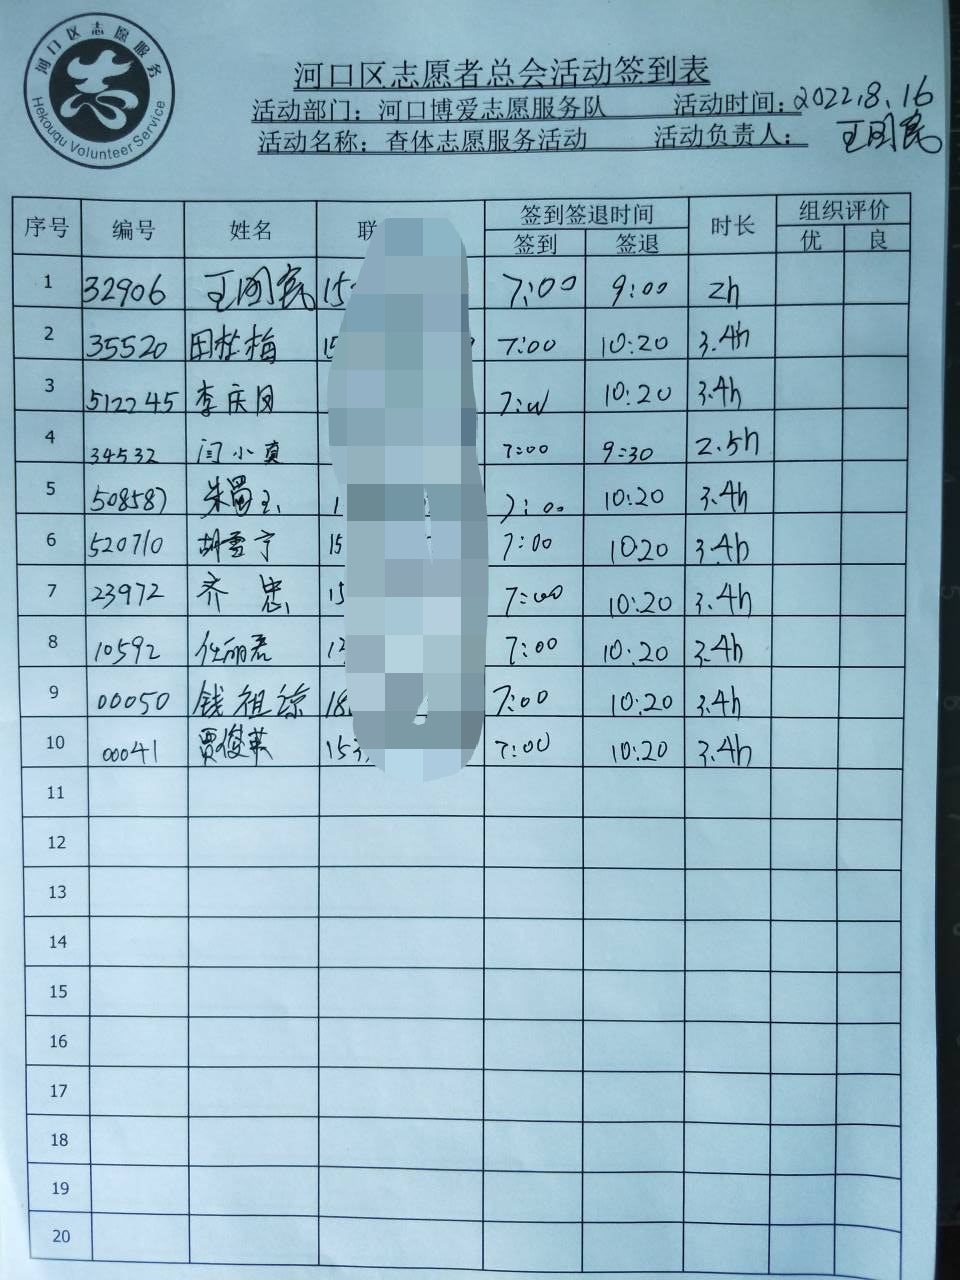 河口区志愿服务
志
Hekouqu Volunteer Service
河口区志愿者总会活动签到表
活动部门：河口博爱志愿服务队 活动时间：2022.8.16
活动名称：查体志愿服务活动 活动负责人：王国民
序号 编号 姓名 联 签到签退时间 时长 组织评价
签到 签退 优 良
1 32906 王国民 15 7:00 9:00 2h
2 35520 田桂梅 15 7:00 10:20 3.4h
3 512245 李庆风 7:00 10:20 3.4h
4 34532 闫小真 7:00 9:30 2.5h
5 508587 朱蜀玉 1 7:00 10:20 3.4h
6 520710 胡雪宁 15 7:00 10:20 3.4h
7 23972 齐忠 15 7:00 10:20 3.4h
8 10592 任丽君 13 7:00 10:20 3.4h
9 00050 钱祖琼 18 7:00 10:20 3.4h
10 00041 贾俊英 153 7:00 10:20 3.4h
11
12
13
14
15
16
17
18
19
20